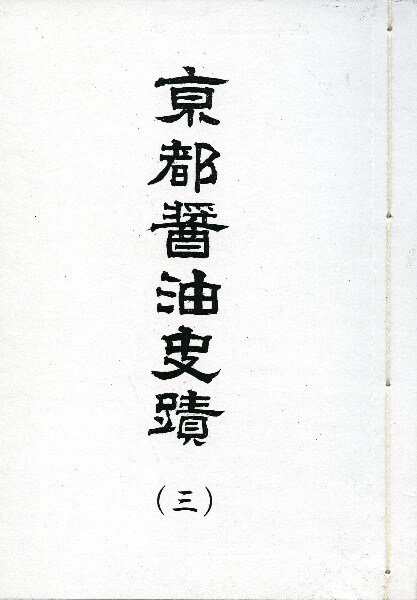 京都醤油史蹟
(三)